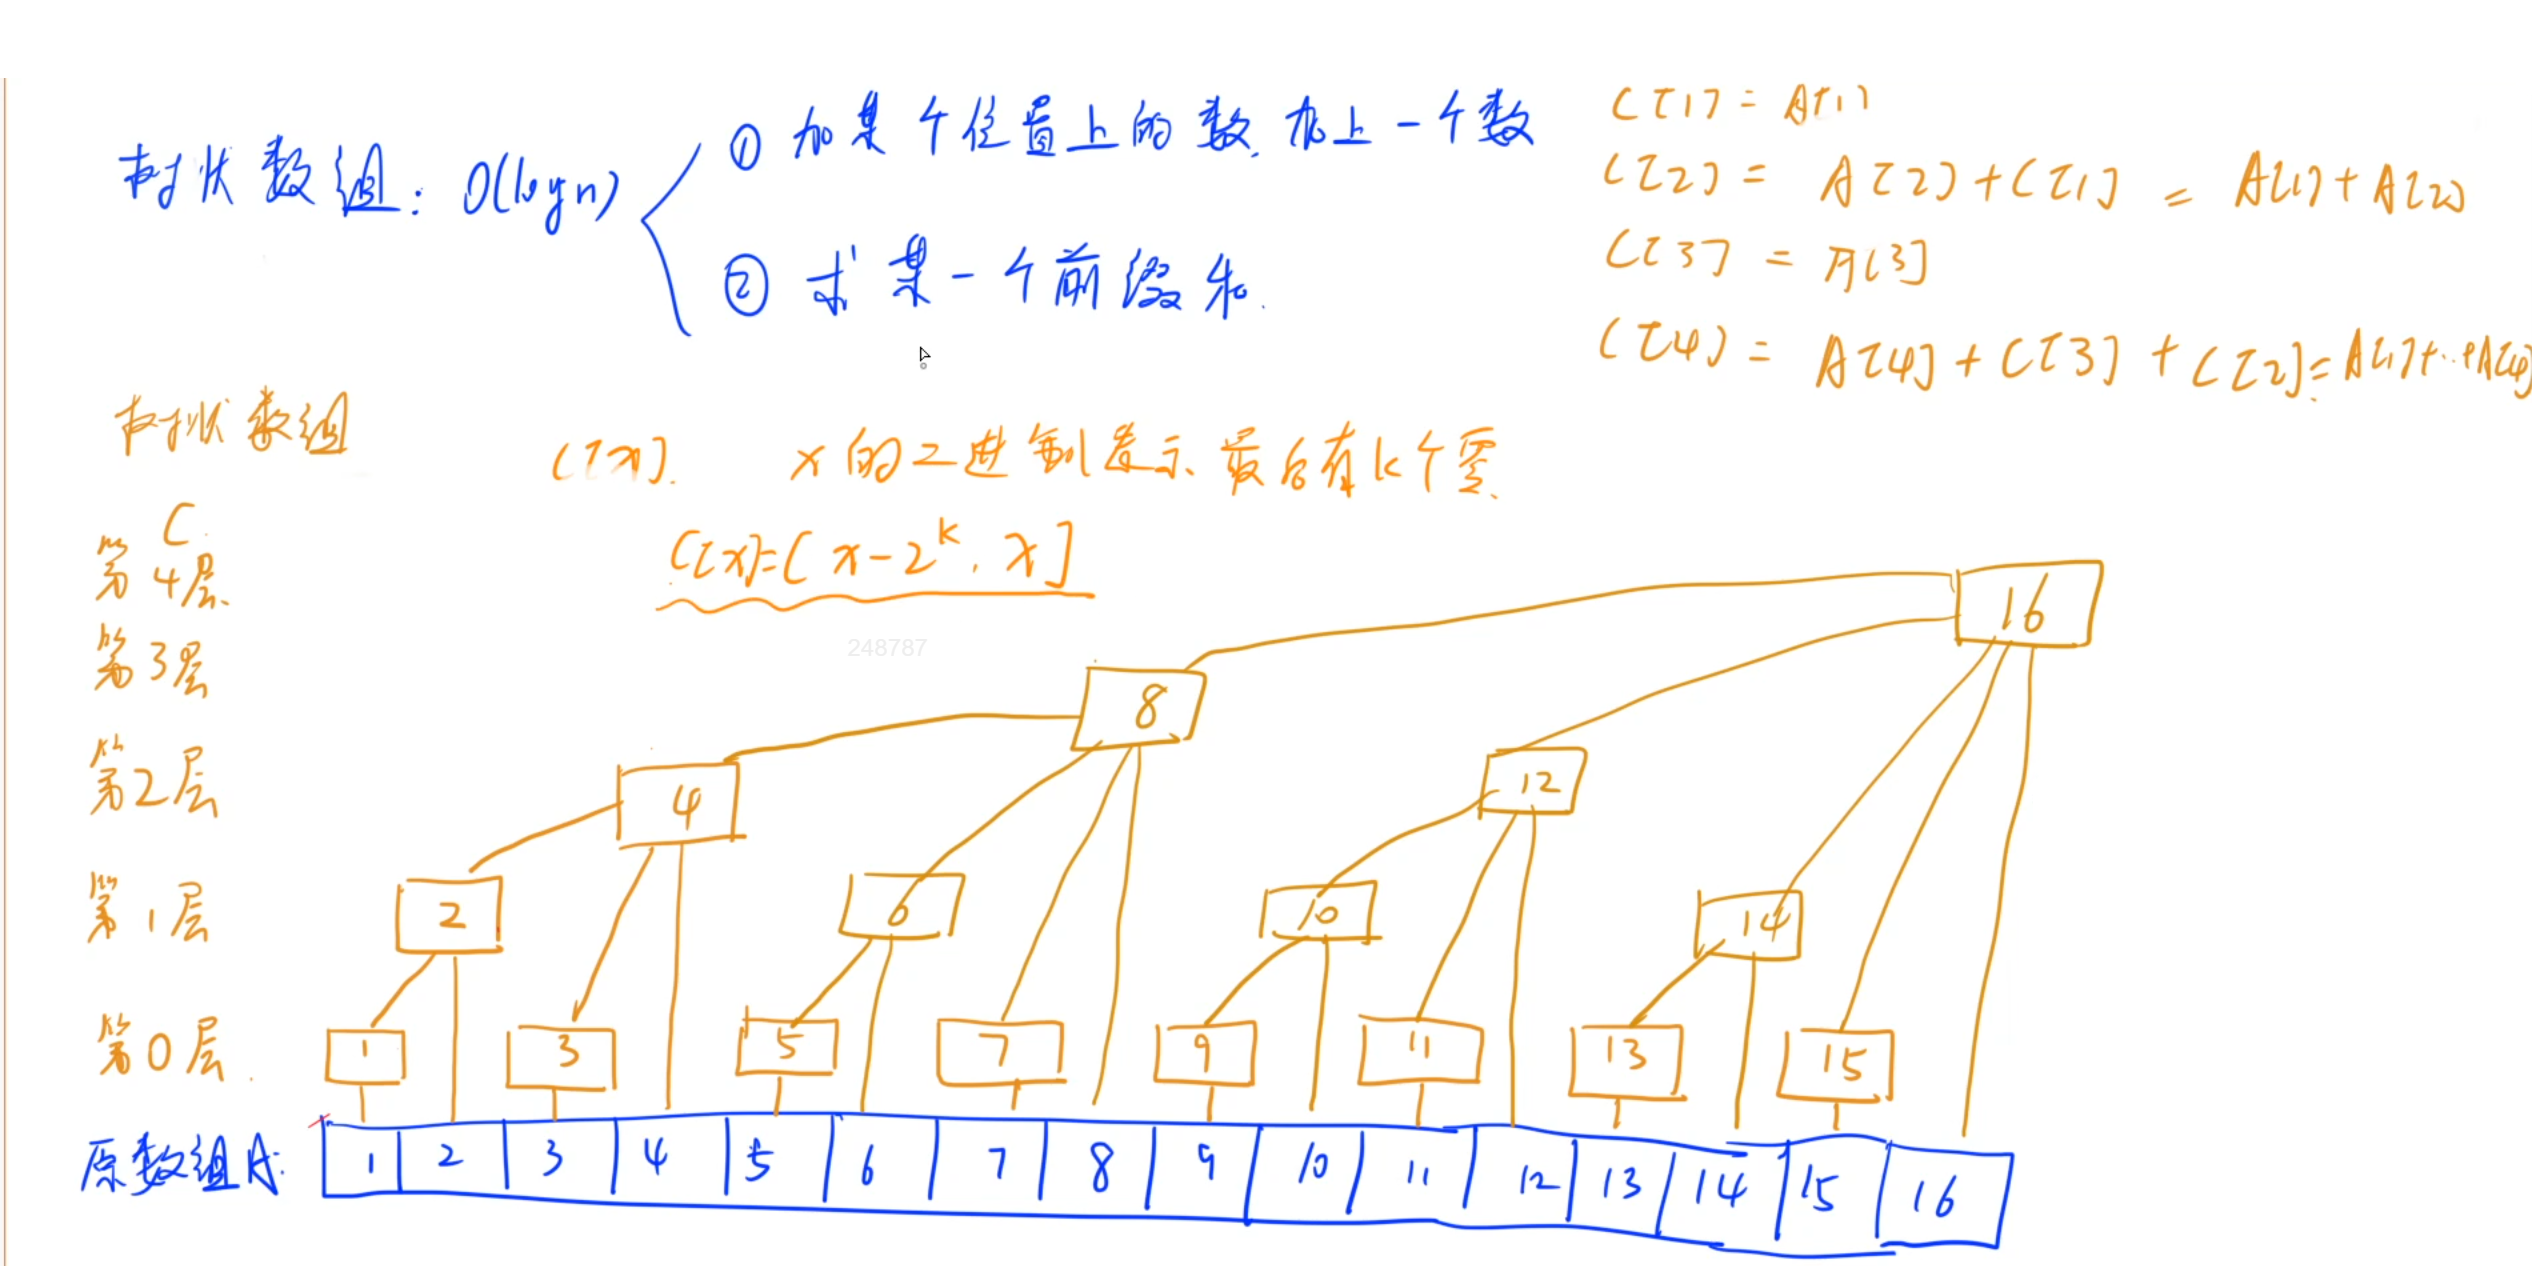 树状数组: O(logn)
① 加某个位置上的数, 加上一个数
② 求某一个前缀和.
C[1] = A[1]
C[2] = A[2] + C[1] = A[1] + A[2]
C[3] = A[3]
C[4] = A[4] + C[3] + C[2] = A[1]+..+A[4]
树状数组
C[x]. x的二进制表示最后有k个零
C.
C[x]=(x-2^k, x]
第4层.
16
第3层
248787
8
第2层
4 12
第1层
2 6 10 14
第0层.
1 3 5 7 9 11 13 15
原数组A:
1 2 3 4 5 6 7 8 9 10 11 12 13 14 15 16